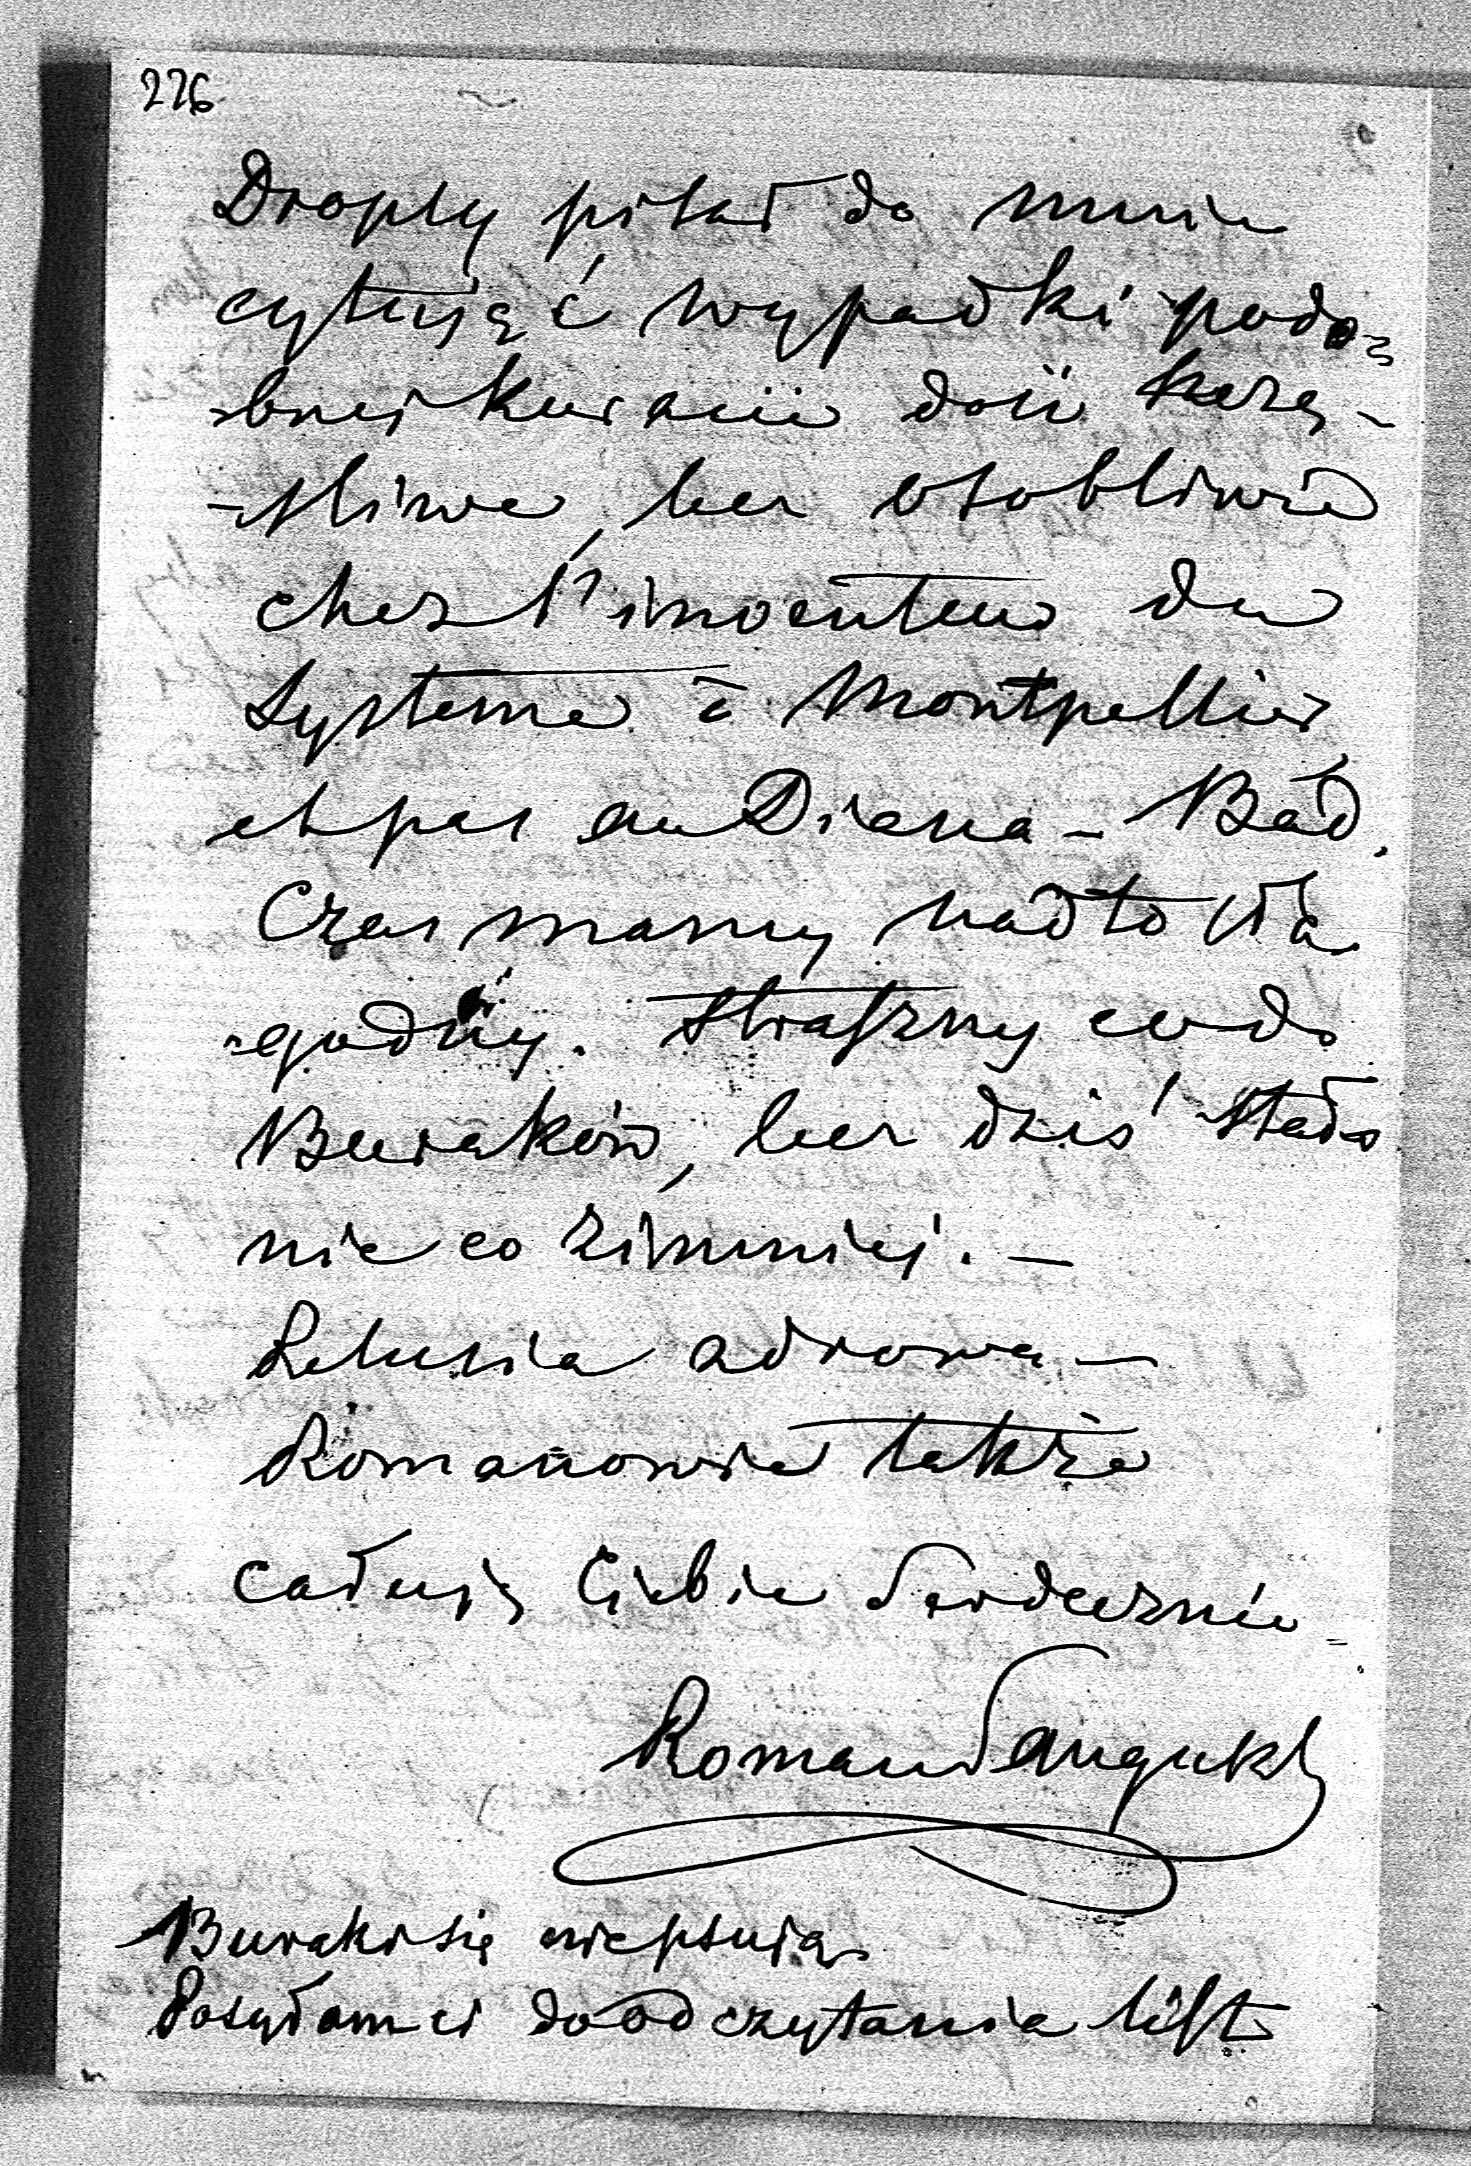 226
pisał do mnie
cytując Ci wypadki podo-
-bnej kuracii dość szczę-
-śliwe, lecz osobliwie
chez l'inventeur du
Systeme à Montpellier,
et pas au Diana-Bad.
Czas mamy nadto ła-
-godny. Straszny co do
Buraków, lecz dziś stało
nie co zimniej. —
zdrowa —
Romanowie także
całuję Ciebie Serdecznie
Roman Sanguszko
Buraki się nie psuią
Posyłam ci do odczytania list